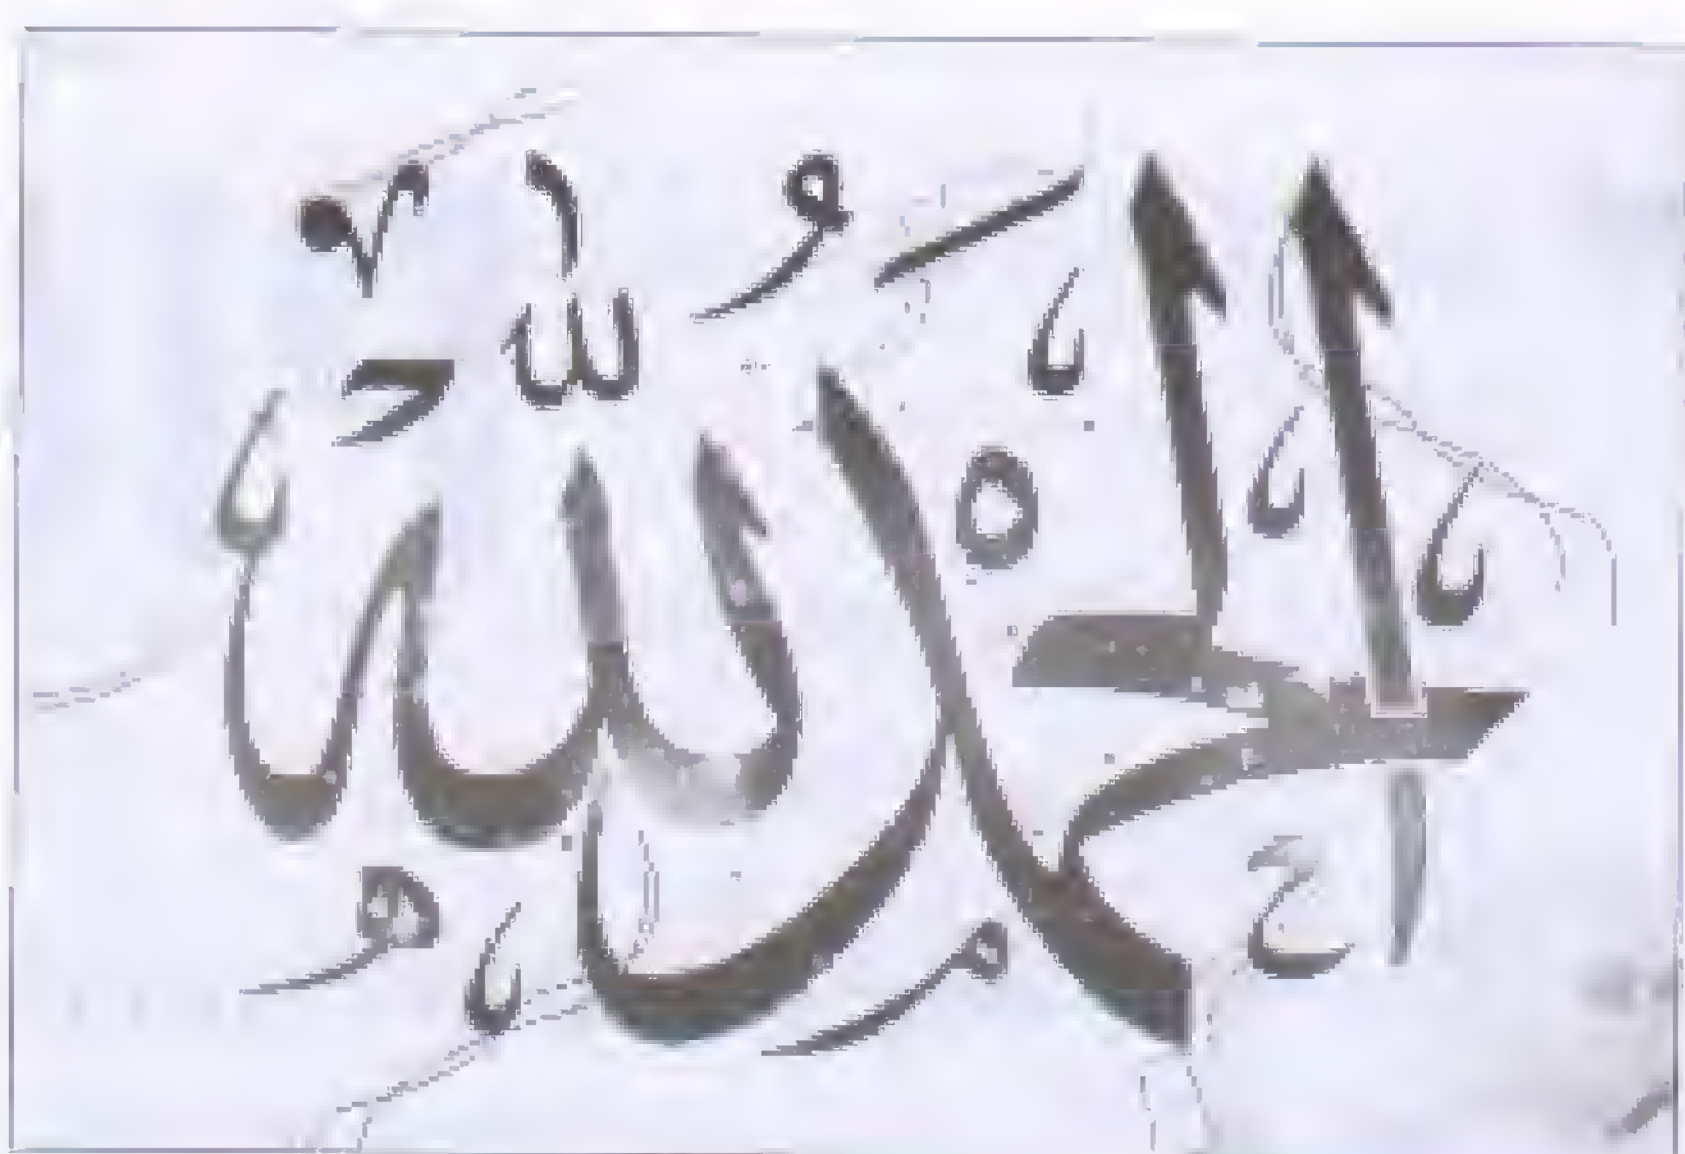 الحمد لله